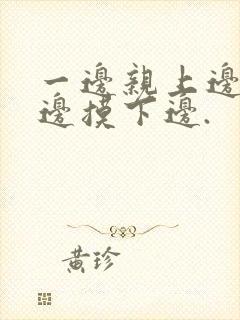 一邊親上邊
邊摸下邊.
黄珍